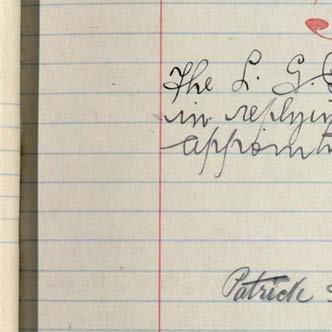 The L. G.
in replyin
appoint
Patrick